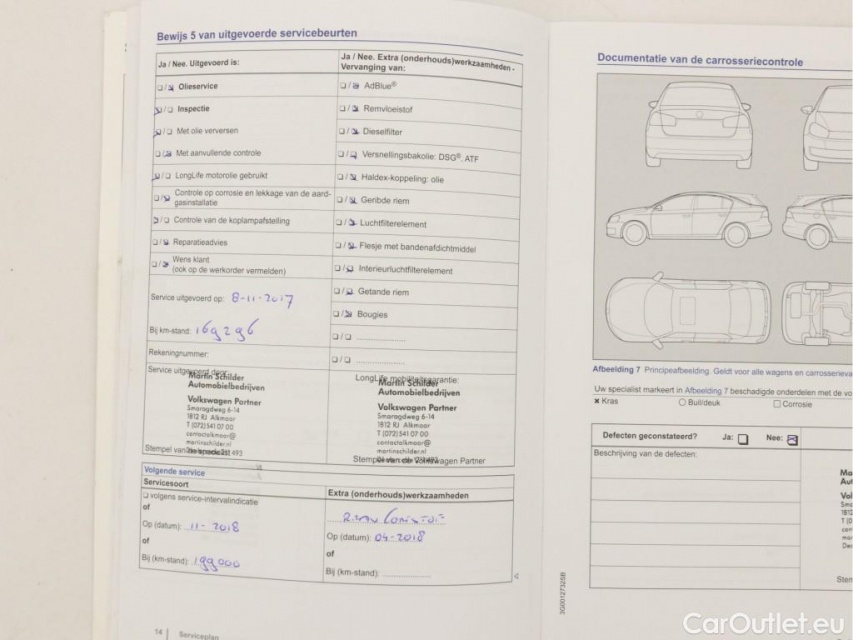 Bewijs 5 van uitgevoerde servicebeurten
Ja / Nee. Uitgevoerd is:
Olieservice
Inspectie
Met olie verversen
Met aanvullende controle
LongLife motorolie gebruikt
Controle op corrosie en lekkage van de aard-
gasinstallatie
Controle van de koplampafstelling
Reparatieadvies
Wens klant
(ook op de werkorder vermelden)
Service uitgevoerd op: 8-11-2017
Bij km-stand: 169296
Rekeningnummer:
Service uitgevoerd door:
Martin Schilder
Automobielbedrijven
Volkswagen Partner
Smaragdweg 6-14
1812 RJ Alkmaar
T (072) 541 07 00
contactalkmaar@
martinschilder.nl
Stempel van de specialist
Ja / Nee. Extra (onderhouds)werkzaamheden -
Vervanging van:
AdBlue®
Remvloeistof
Dieselfilter
Versnellingsbakolie: DSG®, ATF
Haldex-koppeling: olie
Geribde riem
Luchtfilterelement
Flesje met bandenafdichtmiddel
Interieurluchtfilterelement
Getande riem
Bougies
LongLife mobiliteitsgarantie:
Martin Schilder
Automobielbedrijven
Volkswagen Partner
Smaragdweg 6-14
1812 RJ Alkmaar
T (072) 541 07 00
contactalkmaar@
martinschilder.nl
Stempel van de Volkswagen Partner
Volgende service
Servicesoort
volgens service-intervalindicatie
of
Op (datum): 11-2018
of
Bij (km-stand): 199000
Extra (onderhouds)werkzaamheden
Op (datum): 04-2018
of
Bij (km-stand):
14 Serviceplan
Documentatie van de carrosseriecontrole
Afbeelding 7 Principeafbeelding. Geldt voor alle wagens en carrosserieva
Uw specialist markeert in Afbeelding 7 beschadigde onderdelen met de vo
Kras Buil/deuk Corrosie
Defecten geconstateerd? Ja: Nee:
Beschrijving van de defecten:
3G0012732SB
CarOutlet.eu